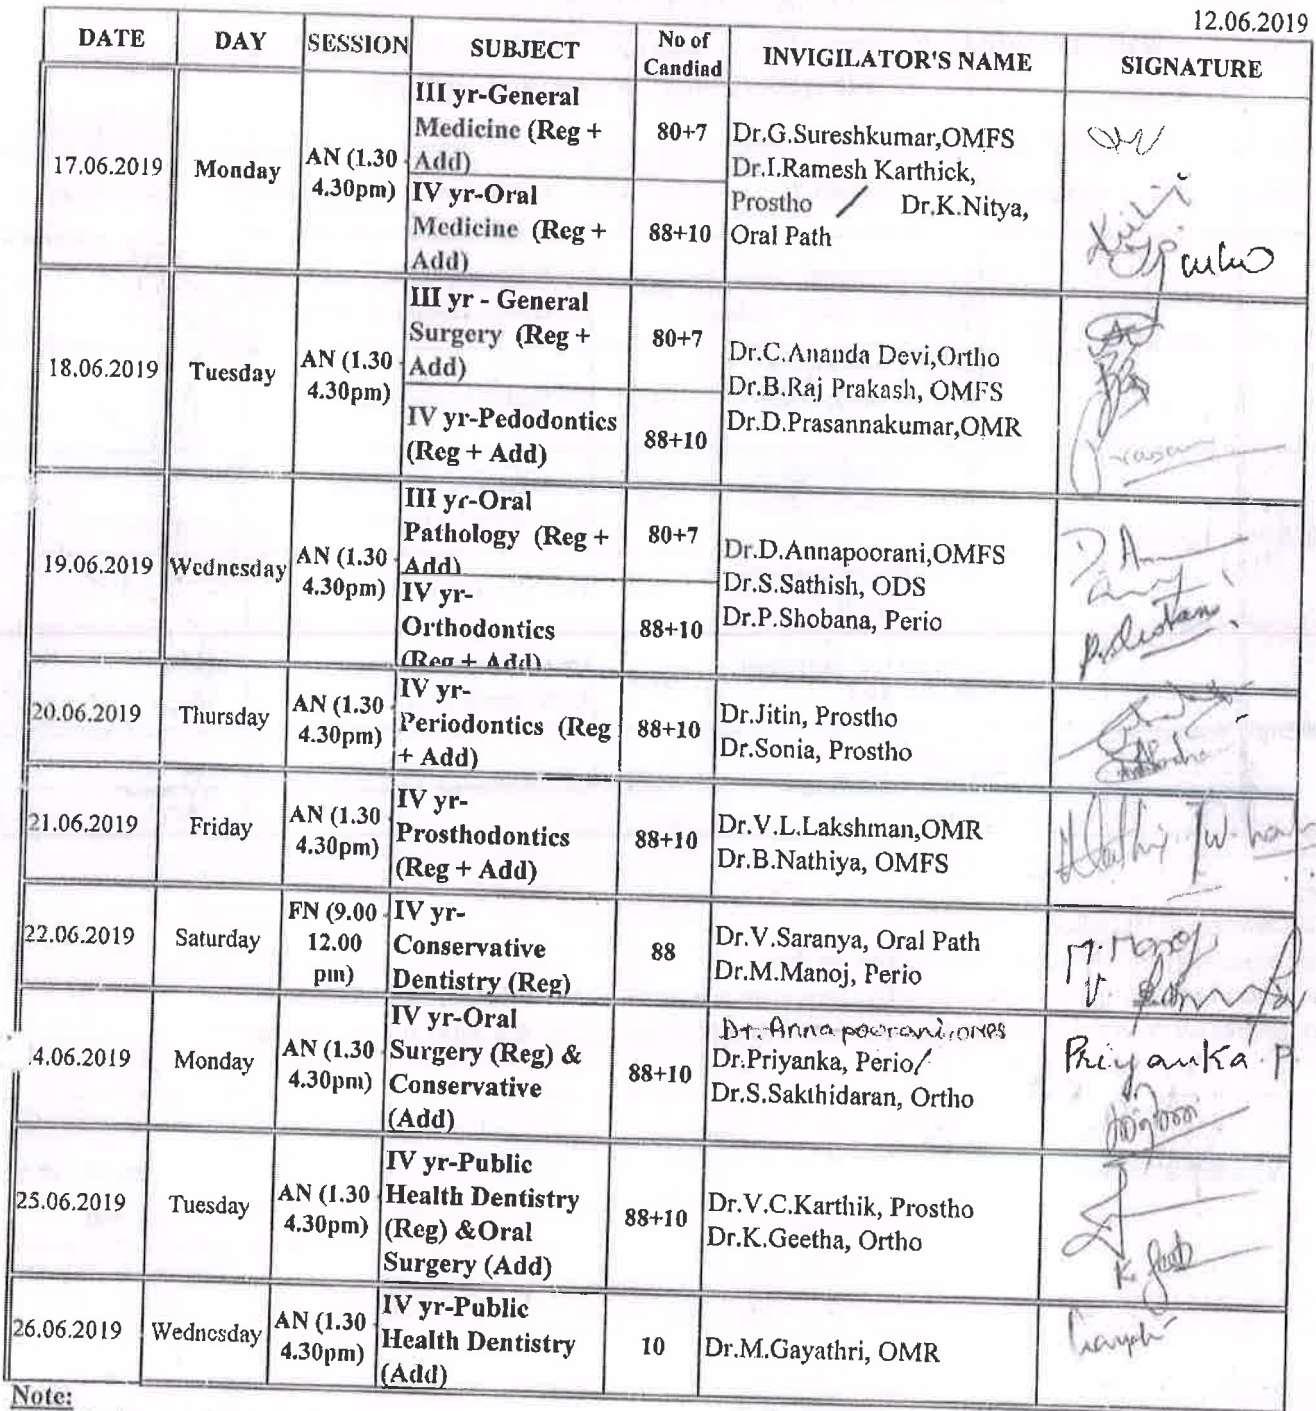 12.06.2019
DATE DAY SESSION SUBJECT No of Candiad INVIGILATOR'S NAME SIGNATURE
17.06.2019 Monday AN (1.30 4.30pm)
III yr-General
Medicine (Reg +
Add)
80+7
IV yr-Oral
Medicine (Reg +
Add)
88+10
Dr.G.Sureshkumar,OMFS
Dr.I.Ramesh Karthick,
Prostho / Dr.K.Nitya,
Oral Path
18.06.2019 Tuesday AN (1.30 4.30pm)
III yr - General
Surgery (Reg +
Add)
80+7
IV yr-Pedodontics
(Reg + Add)
88+10
Dr.C.Ananda Devi,Ortho
Dr.B.Raj Prakash, OMFS
Dr.D.Prasannakumar,OMR
19.06.2019 Wednesday AN (1.30 4.30pm)
III yr-Oral
Pathology (Reg +
Add)
80+7
IV yr-
Orthodontics
(Reg + Add)
88+10
Dr.D.Annapoorani,OMFS
Dr.S.Sathish, ODS
Dr.P.Shobana, Perio
20.06.2019 Thursday AN (1.30 4.30pm)
IV yr-
Periodontics (Reg
+ Add)
88+10
Dr.Jitin, Prostho
Dr.Sonia, Prostho
21.06.2019 Friday AN (1.30 4.30pm)
IV yr-
Prosthodontics
(Reg + Add)
88+10
Dr.V.L.Lakshman,OMR
Dr.B.Nathiya, OMFS
22.06.2019 Saturday FN (9.00 12.00 pm)
IV yr-
Conservative
Dentistry (Reg)
88
Dr.V.Saranya, Oral Path
Dr.M.Manoj, Perio
M. Manoj
4.06.2019 Monday AN (1.30 4.30pm)
IV yr-Oral
Surgery (Reg) &
Conservative
(Add)
88+10
Dr. Annapoorani, OMFS
Dr.Priyanka, Perio/
Dr.S.Sakthidaran, Ortho
Priyanka. P
25.06.2019 Tuesday AN (1.30 4.30pm)
IV yr-Public
Health Dentistry
(Reg) &Oral
Surgery (Add)
88+10
Dr.V.C.Karthik, Prostho
Dr.K.Geetha, Ortho
26.06.2019 Wednesday AN (1.30 4.30pm)
IV yr-Public
Health Dentistry
(Add)
10
Dr.M.Gayathri, OMR
Note: